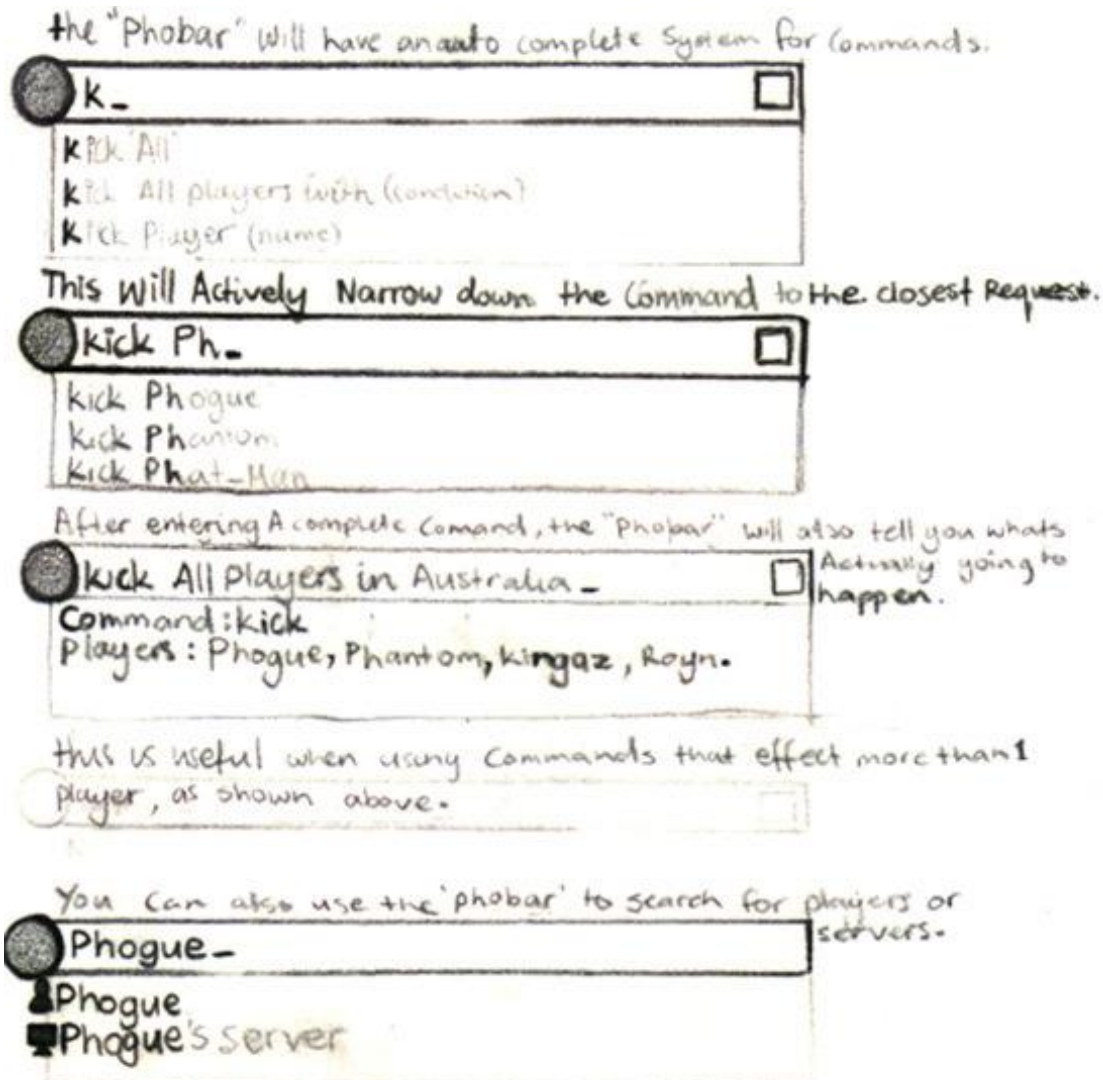 the "Phobar" will have an auto complete System for Commands.
k_
kick All
kick All players with (condition)
kick Player (name)
This Will Actively Narrow down the Command to the closest Request.
kick Ph_
kick Phogue
kick Phantom
kick Phat-Man
After entering A complete Comand, the "Phobar" will also tell you whats
Actually going to
happen.
kick All Players in Australia_
Command: kick
Players: Phogue, Phantom, kingaz, Royn.
this is useful when using Commands that effect more than 1
player, as shown above.
You Can also use the 'phobar' to search for players or
servers.
Phogue_
Phogue
Phogue's server